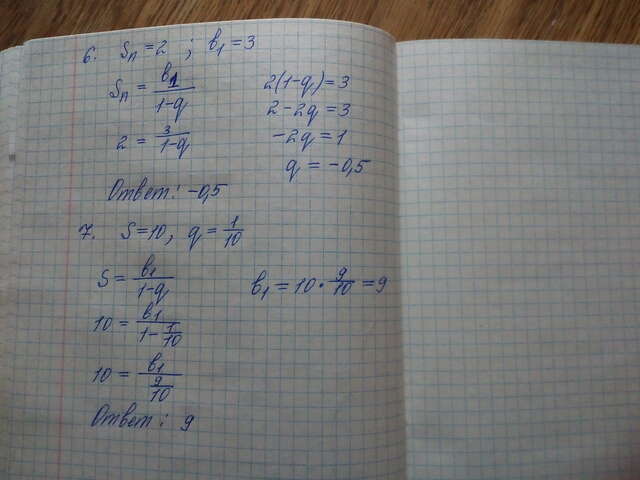 6. Sₙ = 2 ; b₁ = 3
Sₙ = b₁/(1-q)
2 = 3/(1-q)
2(1-q) = 3
2 - 2q = 3
-2q = 1
q = -0,5
Ответ: -0,5
7. S = 10, q = 1/10
S = b₁/(1-q)
10 = b₁/(1 - 1/10)
10 = b₁/(9/10)
b₁ = 10 · 9/10 = 9
Ответ: 9